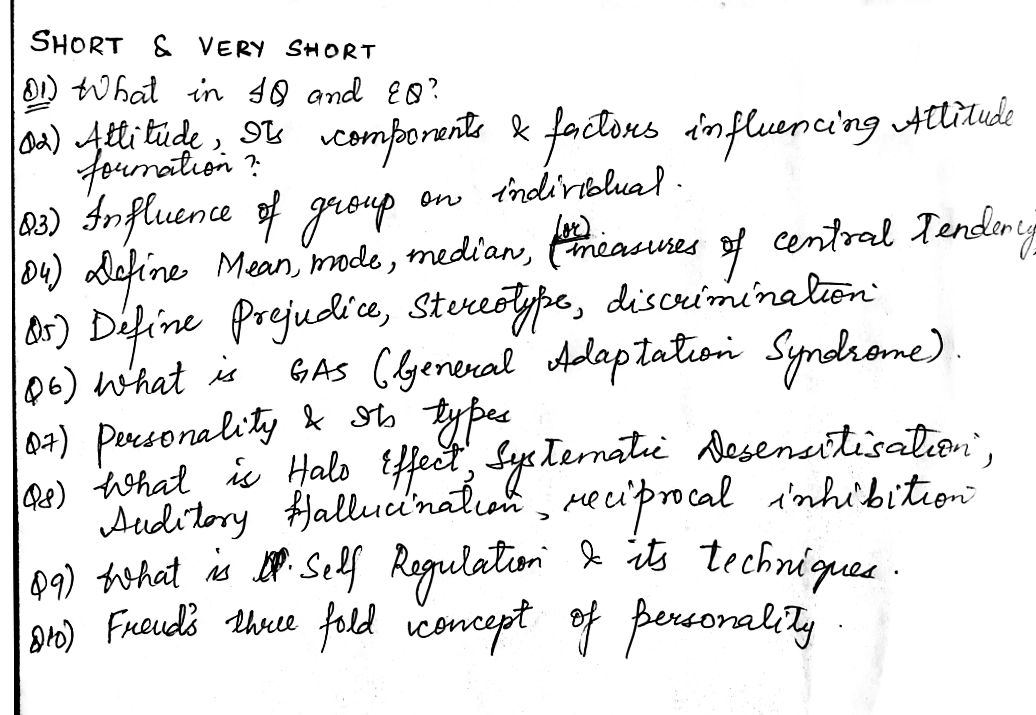 SHORT & VERY SHORT
Q1) What in IQ and EQ?
Q2) Attitude, Its components & factors influencing Attitude
formation?
Q3) Influence of group on individual.
Q4) Define Mean, mode, median, (or) (measures of central Tendency
Q5) Define Prejudice, Stereotype, discrimination
Q6) What is GAS (General Adaptation Syndrome).
Q7) Personality & Its types
Q8) What is Halo Effect, Systematic Desensitisation,
Auditory Hallucination, reciprocal inhibition
Q9) What is Self Regulation & its techniques.
Q10) Freud's three fold concept of personality.